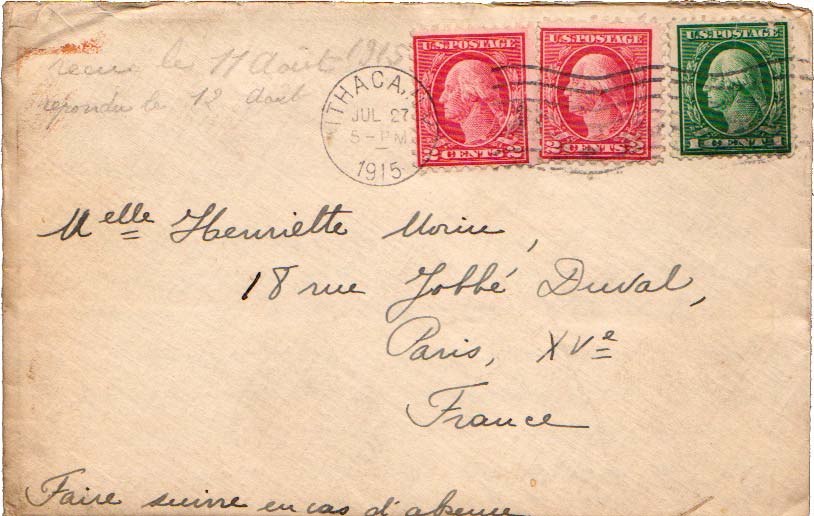 recu le 11 Aout 1915
repondu le 12 Aout
ITHACA, N.Y.
JUL 27
5-PM
1915
U.S. POSTAGE
2 CENTS 2
U.S. POSTAGE
2 CENTS 2
U.S. POSTAGE
1 CENT 1
Melle Henriette Morin,
18 rue Jobbé Duval,
Paris, XVe
France
Faire suivre en cas d'absence